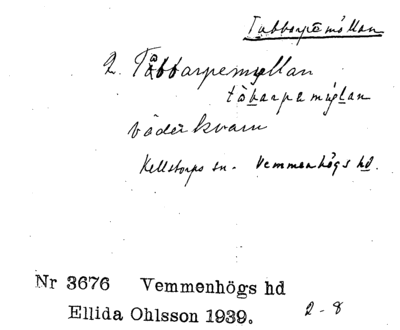 Tubbarpamöllan
2. Tåbbarpemyllan
tåbarpamyglan
väderkvarn
Kellstorps sn. Vemmenhögs hd.
Nr 3676 Vemmenhögs hd
Ellida Ohlsson 1939.
2-8